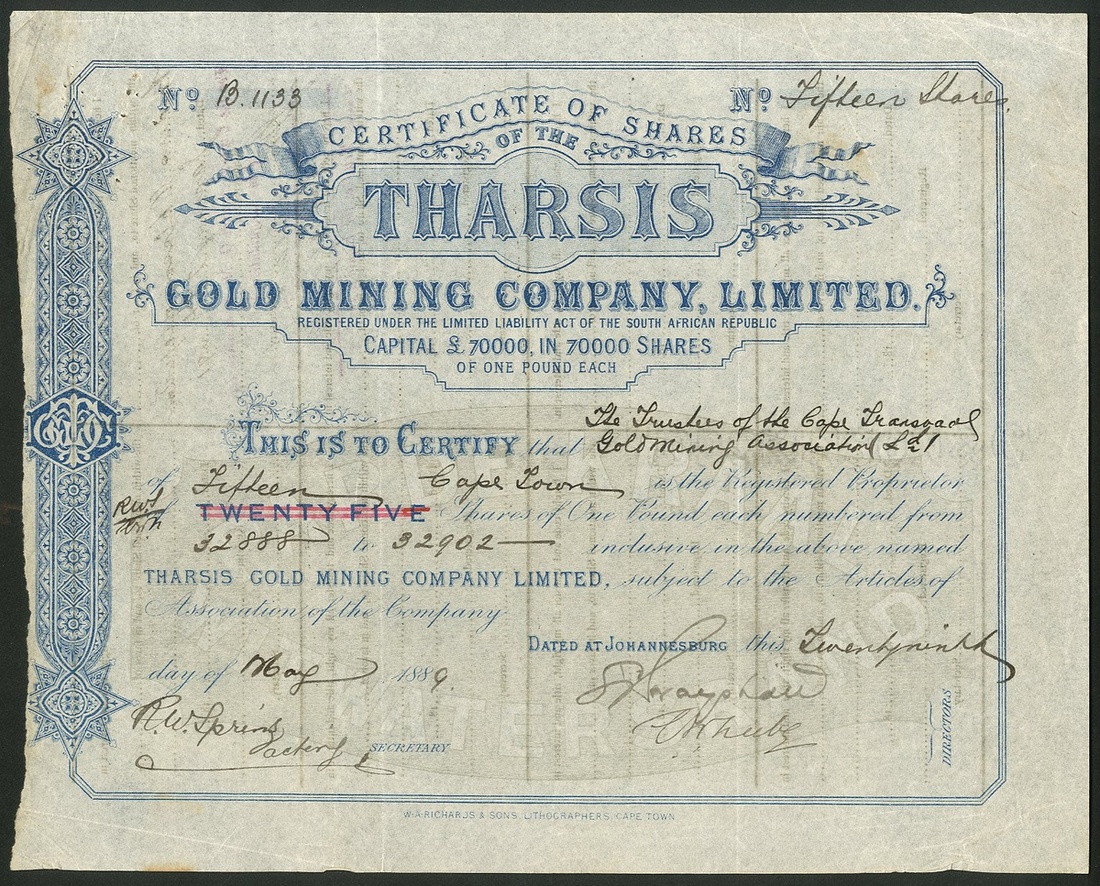 Nº B.1133
Nº Fifteen Shares.
CERTIFICATE OF SHARES
OF THE
THARSIS
GOLD MINING COMPANY, LIMITED.
REGISTERED UNDER THE LIMITED LIABILITY ACT OF THE SOUTH AFRICAN REPUBLIC
CAPITAL £ 70000, IN 70000 SHARES
OF ONE POUND EACH
The Trustees of the Cape Transvaal
THIS IS TO CERTIFY that Gold Mining Association Ld
of Fifteen Cape Town is the Registered Proprietor
of TWENTY FIVE Shares of One Pound each numbered from
32888 to 32902 inclusive, in the above named
THARSIS GOLD MINING COMPANY LIMITED, subject to the Articles of
Association of the Company
DATED AT JOHANNESBURG this Twentyninth
day of May 1889.
R.W. Spring
Acting SECRETARY
DIRECTORS
W.A. RICHARDS & SONS, LITHOGRAPHERS, CAPE TOWN